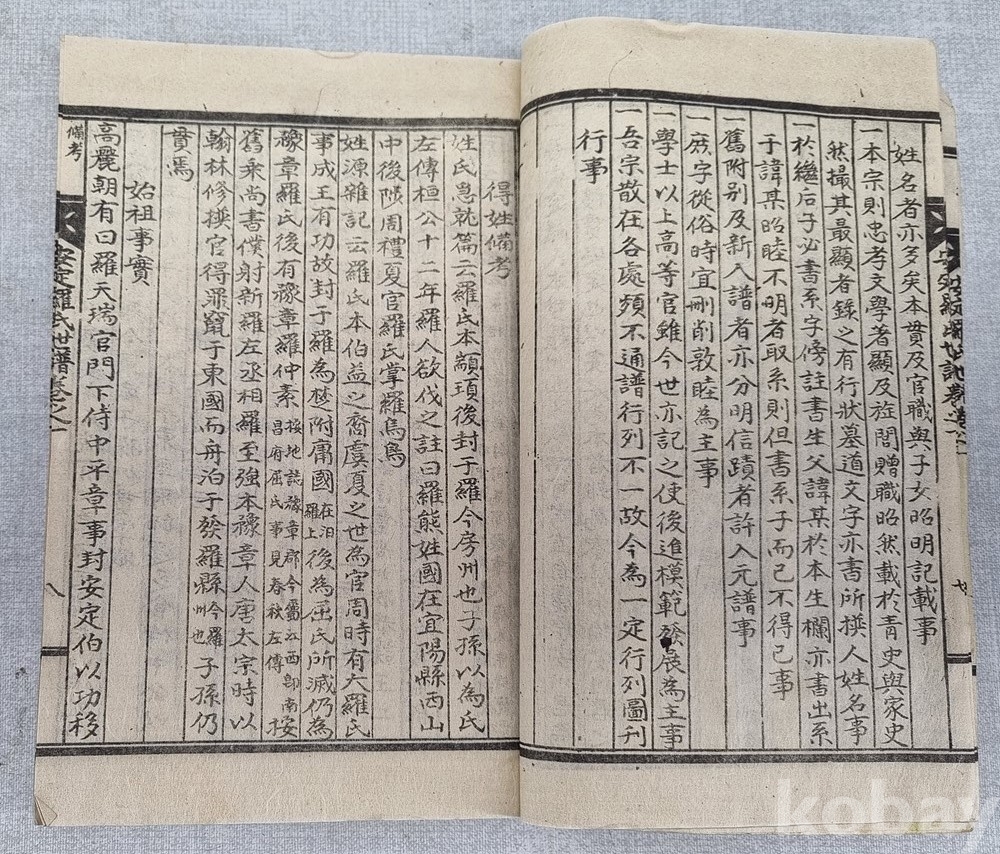 姓名者亦多矣本貫及官職與子女昭明記載事
一本宗則忠孝文學著顯及旌閭贈職昭然載於靑史與家史
然撮其最顯者錄之有行狀墓道文字亦書所撰人姓名事
一於繼后子必書系字傍註書生父諱某於本生欄亦書出系
于諱某昭睦不明者取系則但書系子而已不得已事
一舊附別及新入譜者亦分明信蹟者許入元譜事
一庶字從俗時宜刪削敦睦爲主事
一學士以上高等官雖今世亦記之使後進模範發展爲主事
一吾宗散在各處頻不通譜行列不一故今爲一定行列圖刊
行事
得姓備考
姓氏急就篇云羅氏本顓頊後封于羅今房州也子孫以爲氏
左傳桓公十二年羅人欲伐之註曰羅熊姓國在宜陽縣西山
中後陟周禮夏官羅氏掌羅烏鳥
姓源雜記云羅氏本伯益之裔虞夏之世爲官周時有大羅氏
事成王有功故封于羅爲楚附庸國在汨羅上後爲屈氏所滅仍爲
豫章羅氏後有豫章羅仲素按地誌豫章郡今屬江西卽南昌府屈氏事見春秋左傳按
舊乘尚書僕射新羅左丞相羅至强本豫章人唐太宗時以
翰林修撰官得罪竄于東國而舟泊于發羅縣今羅州也子孫仍
貫焉
始祖事實
高麗朝有曰羅天瑞官門下侍中平章事封安定伯以功移
備考
安定羅氏世譜卷之一
八
kobay